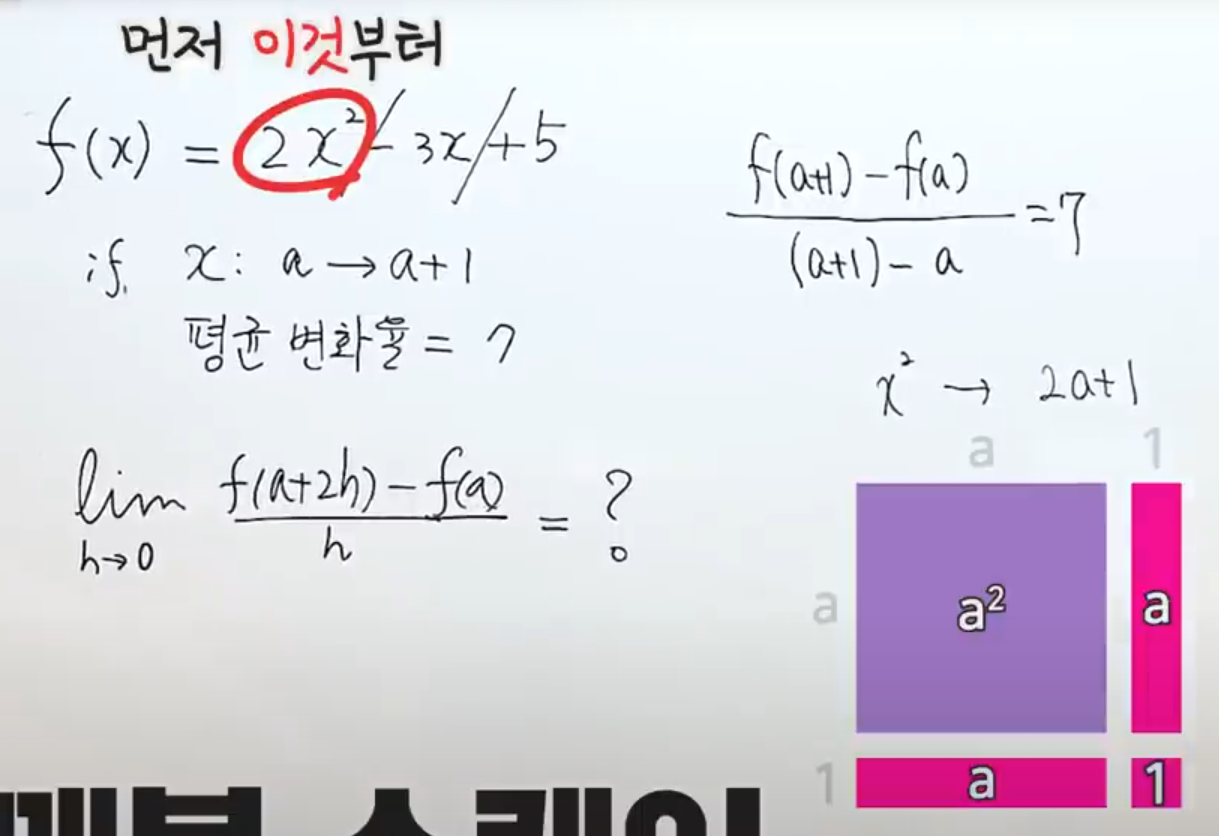 먼저 이것부터
f(x) = 2x² - 3x + 5
if. x: a → a+1
평균 변화율 = 7
lim h→0 f(a+2h) - f(a) / h = ?
f(a+1) - f(a) / (a+1) - a = 7
x² → 2a+1
a 1
a a² a
1 a 1